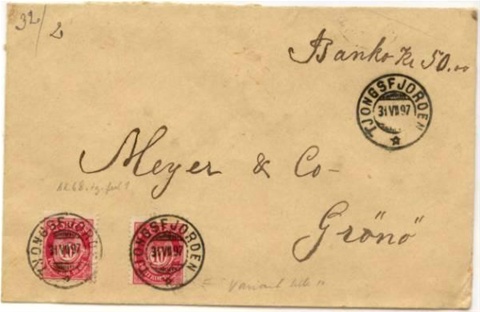 32/2
Banko Kr 50.00
TJONGSFJORDEN
31 VII 97
Meyer & Co-
Grönö
TJONGSFJORDEN
31 VII 97
TJONGSFJORDEN
31 VII 97
10